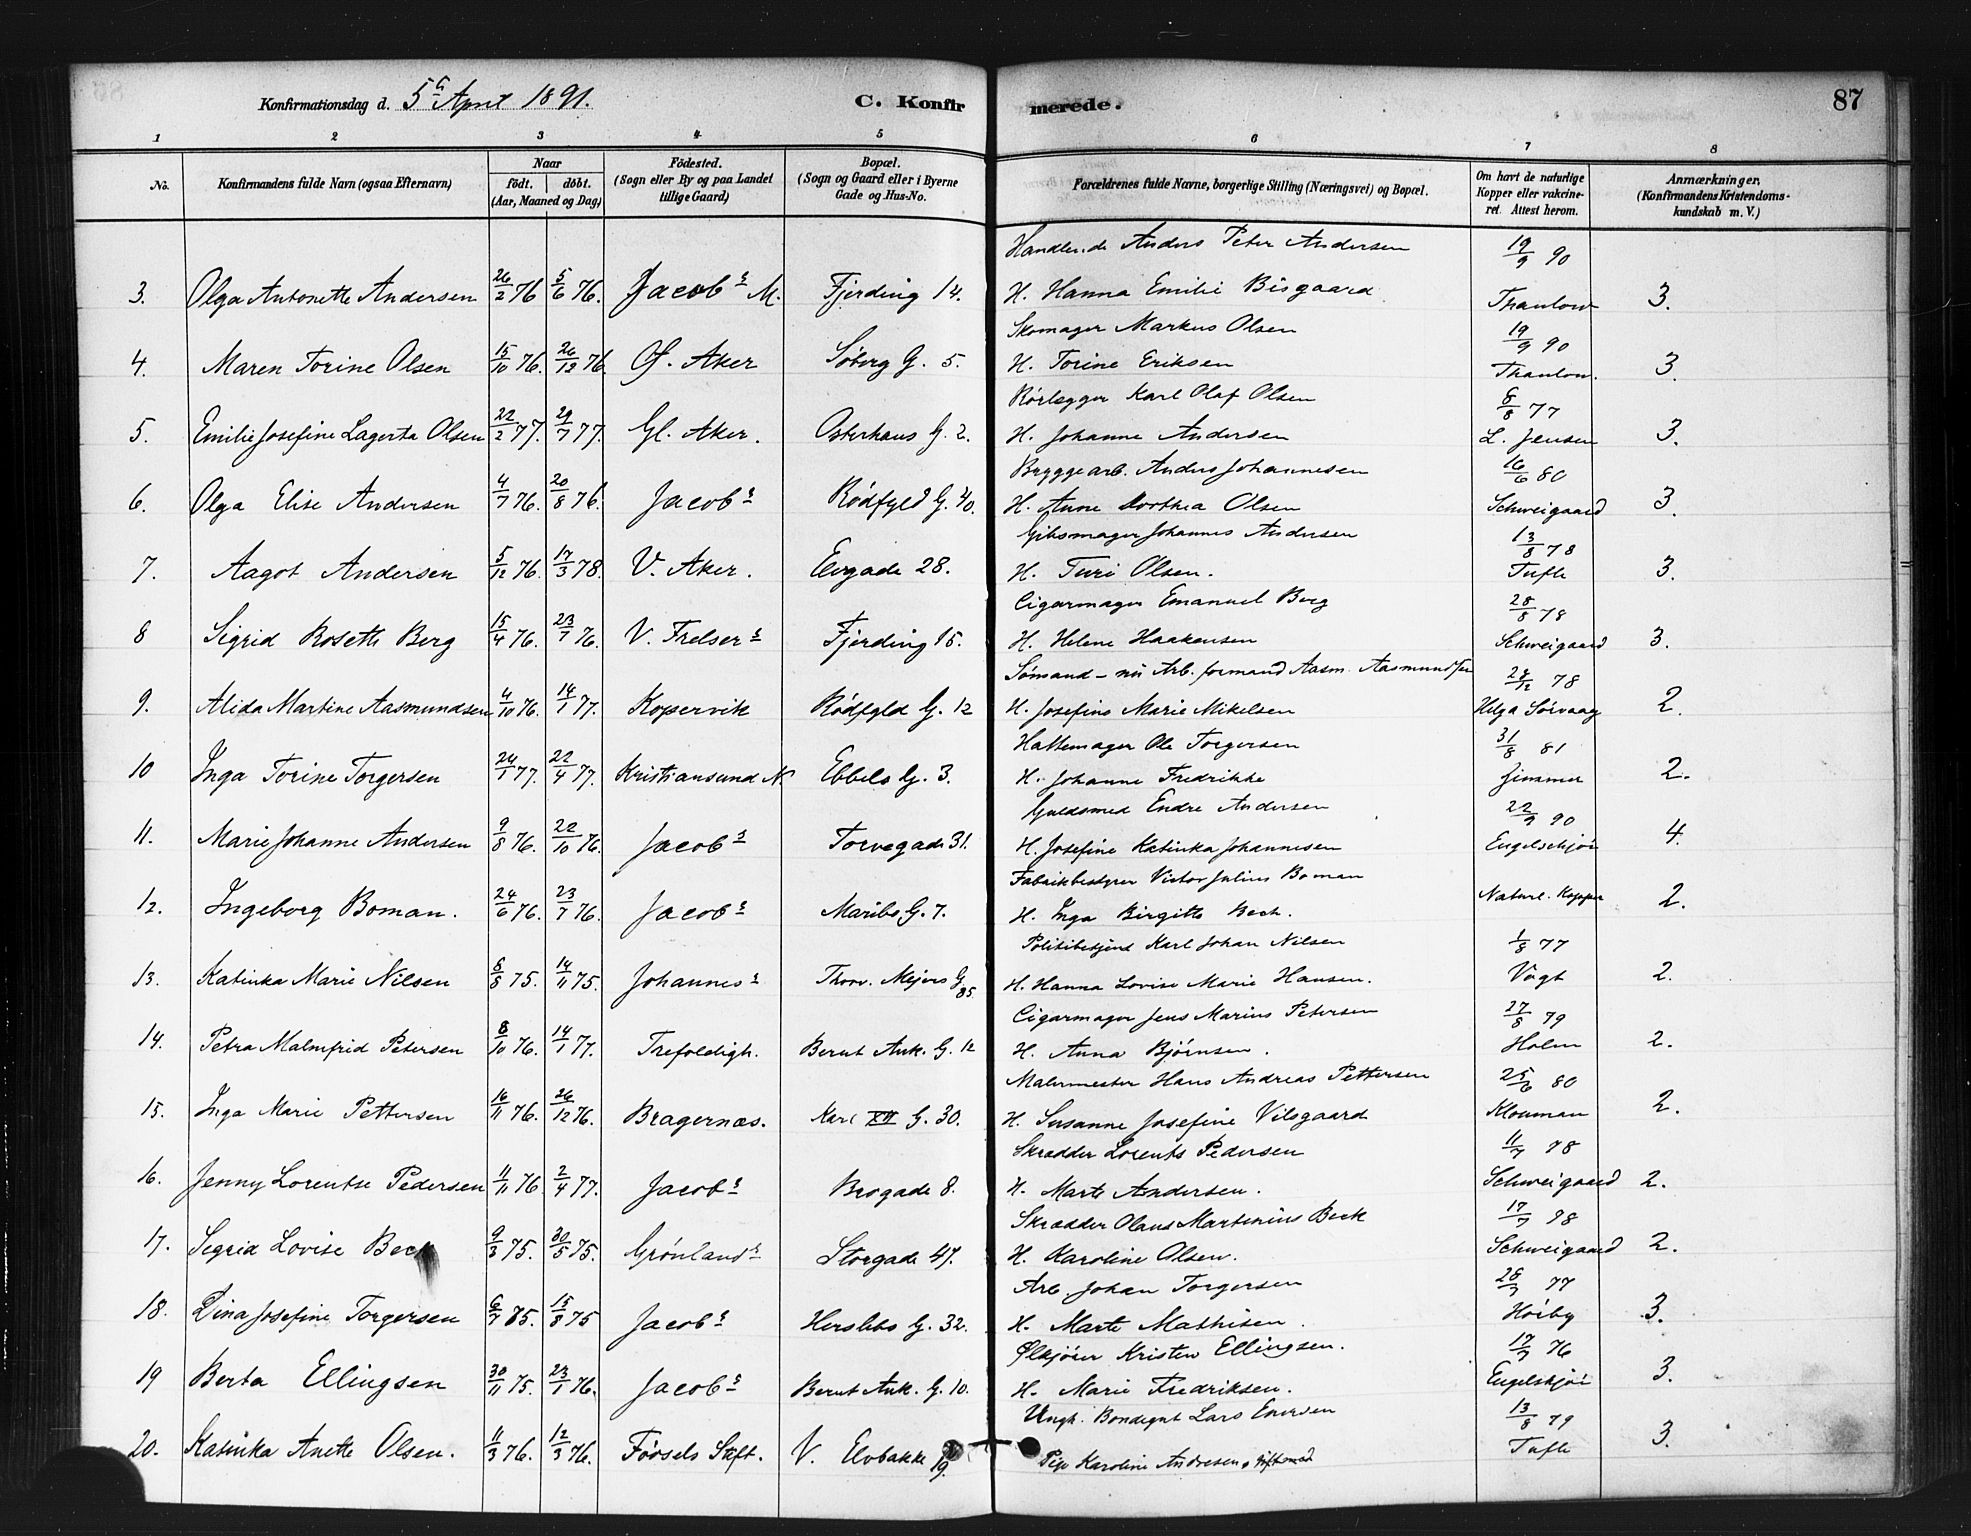 Konfirmationsdag d. 5te April 1891. C. Konfirmerede. 87
1 2 3 4 5 6 7 8
No. Konfirmandens fulde Navn (ogsaa Efternavn) Naar födt. döbt. (Aar, Maaned og Dag) Födested. (Sogn eller By og paa Landet tillige Gaard) Bopæl. (Sogn og Gaard eller i Byerne Gade og Hus-No. Forældrenes fulde Navne, borgerlige Stilling (Næringsvei) og Bopæl. Om havt de naturlige Kopper eller vakcineret. Attest herom. Anmærkninger. (Konfirmandens Kristendomskundskab m. V.)
Handlende Anders Peter Andersen 19/9 90
3. Olga Antonette Andersen 26/2 76 5/6 76. Jacobs M. Fjerding 14. H. Hanna Emilie Bisgaard Thaulow 3.
Skomager Markus Olsen 19/9 90
4. Maren Torine Olsen 15/10 76. 26/12 76 Ø. Aker Søberg G. 5. H. Torine Eriksen Thaulow. 3.
Rørlægger Karl Olaf Olsen 8/8 77
5. Emilie Josefine Lagerta Olsen 22/2 77. 29/7 77. Gl. Aker. Osterhaus G. 2. H. Johanne Andersen L. Jensen 3.
Bryggearb. Anders Johannesen 16/6 80
6. Olga Elise Andersen 4/7 76. 20/8 76. Jacobs Rødfyld G. 40. H. Anne Dorthea Olsen Schweigaard 3.
Gibsmager Johannes Andersen 13/8 78
7. Aagot Andersen 5/12 76. 17/3 78. V. Aker. Elvgade 28. H. Turi Olsen. Tufte 3.
Cigarmager Emanuel Berg 28/8 78
8 Sigrid Rosette Berg 15/4 76. 23/7 76. V. Frelsers Fjerding 15. H. Helene Haakensen Schweigaard 3.
Sømand – nu Arb. formand Aasm. Aasmundsen 28/12 78
9. Alida Martine Aasmundsen 4/10 76. 14/1 77. Kopervik Rødfyld G. 12 H. Josefine Marie Mikelsen Helga Sørvaag 2.
Hattemager Ole Torgersen 31/8 81
10 Inga Torine Torgersen 24/1 77. 22/4 77. Kristiansund N. Ebbels G. 3. H. Johanne Fredrikke Zimmer 2.
Guldsmed Endre Andersen 22/9 90
11. Marie Johanne Andersen 9/8 76. 22/10 76. Jacobs Torvegade 31. H. Josefine Katinka Johannesen Engelschjøn 4.
Fabrikbestyrer Victor Julius Boman
12. Ingeborg Boman. 24/6 76. 23/7 76. Jacobs Maribo G. 7. H. Inga Birgitte Bech. Naturl. Kopper 2.
Politibetjent Karl Johan Nilsen 1/8 77
13. Katinka Marie Nilsen 8/8 75. 14/11 75. Johannes Thorv. Mejers G. 85. H. Hanna Lovise Marie Hansen. Vogt 2.
Cigarmager Jens Marius Petersen 27/8 79
14. Petra Malmfrid Petersen 8/10 76. 14/1 77. Trefoldigh. Bernt Ank. G. 12 H. Anna Bjørnsen. Holm 2.
Malermester Hans Andreas Pettersen 25/6 80
15. Inga Marie Pettersen 16/11 76. 26/12 76. Bragernæs. Karl XII G. 30. H. Susanne Josefine Vilsgaard Klouman 2.
Skrædder Lorents Pedersen 11/7 78
16. Jenny Lorentse Pedersen 11/11 76 2/4 77. Jacobs Brogade 8. H. Marte Andersen. Schweigaard 2.
Skrædder Olaus Martinius Beck 17/7 98
17. Sigrid Lovise Beck 9/3 75. 30/5 75. Grønlands Storgade 47. H. Karoline Olsen. Schweigaard 2.
Arb Johan Torgersen 28/7 77
18. Dina Josefine Torgersen 6/7 85. 15/8 75 Jacobs Herslebs G. 32. H. Marte Mathisen. Høiby 3.
Ølkjører Kristen Ellingsen. 17/7 76
19 Berta Ellingsen 30/11 75. 23/1 76. Jacobs Bernt Ank. G. 10. H. Marie Fredriksen. Engelskjøn 3.
Ungk. Bondegut Lars Iversen 13/8 79
20. Katinka Anette Olsen. 11/3 76. 12/3 76. Fødsels Stift. V. Elvbakke 19. Pige Karoline Andresen, gift med Tufte 3.